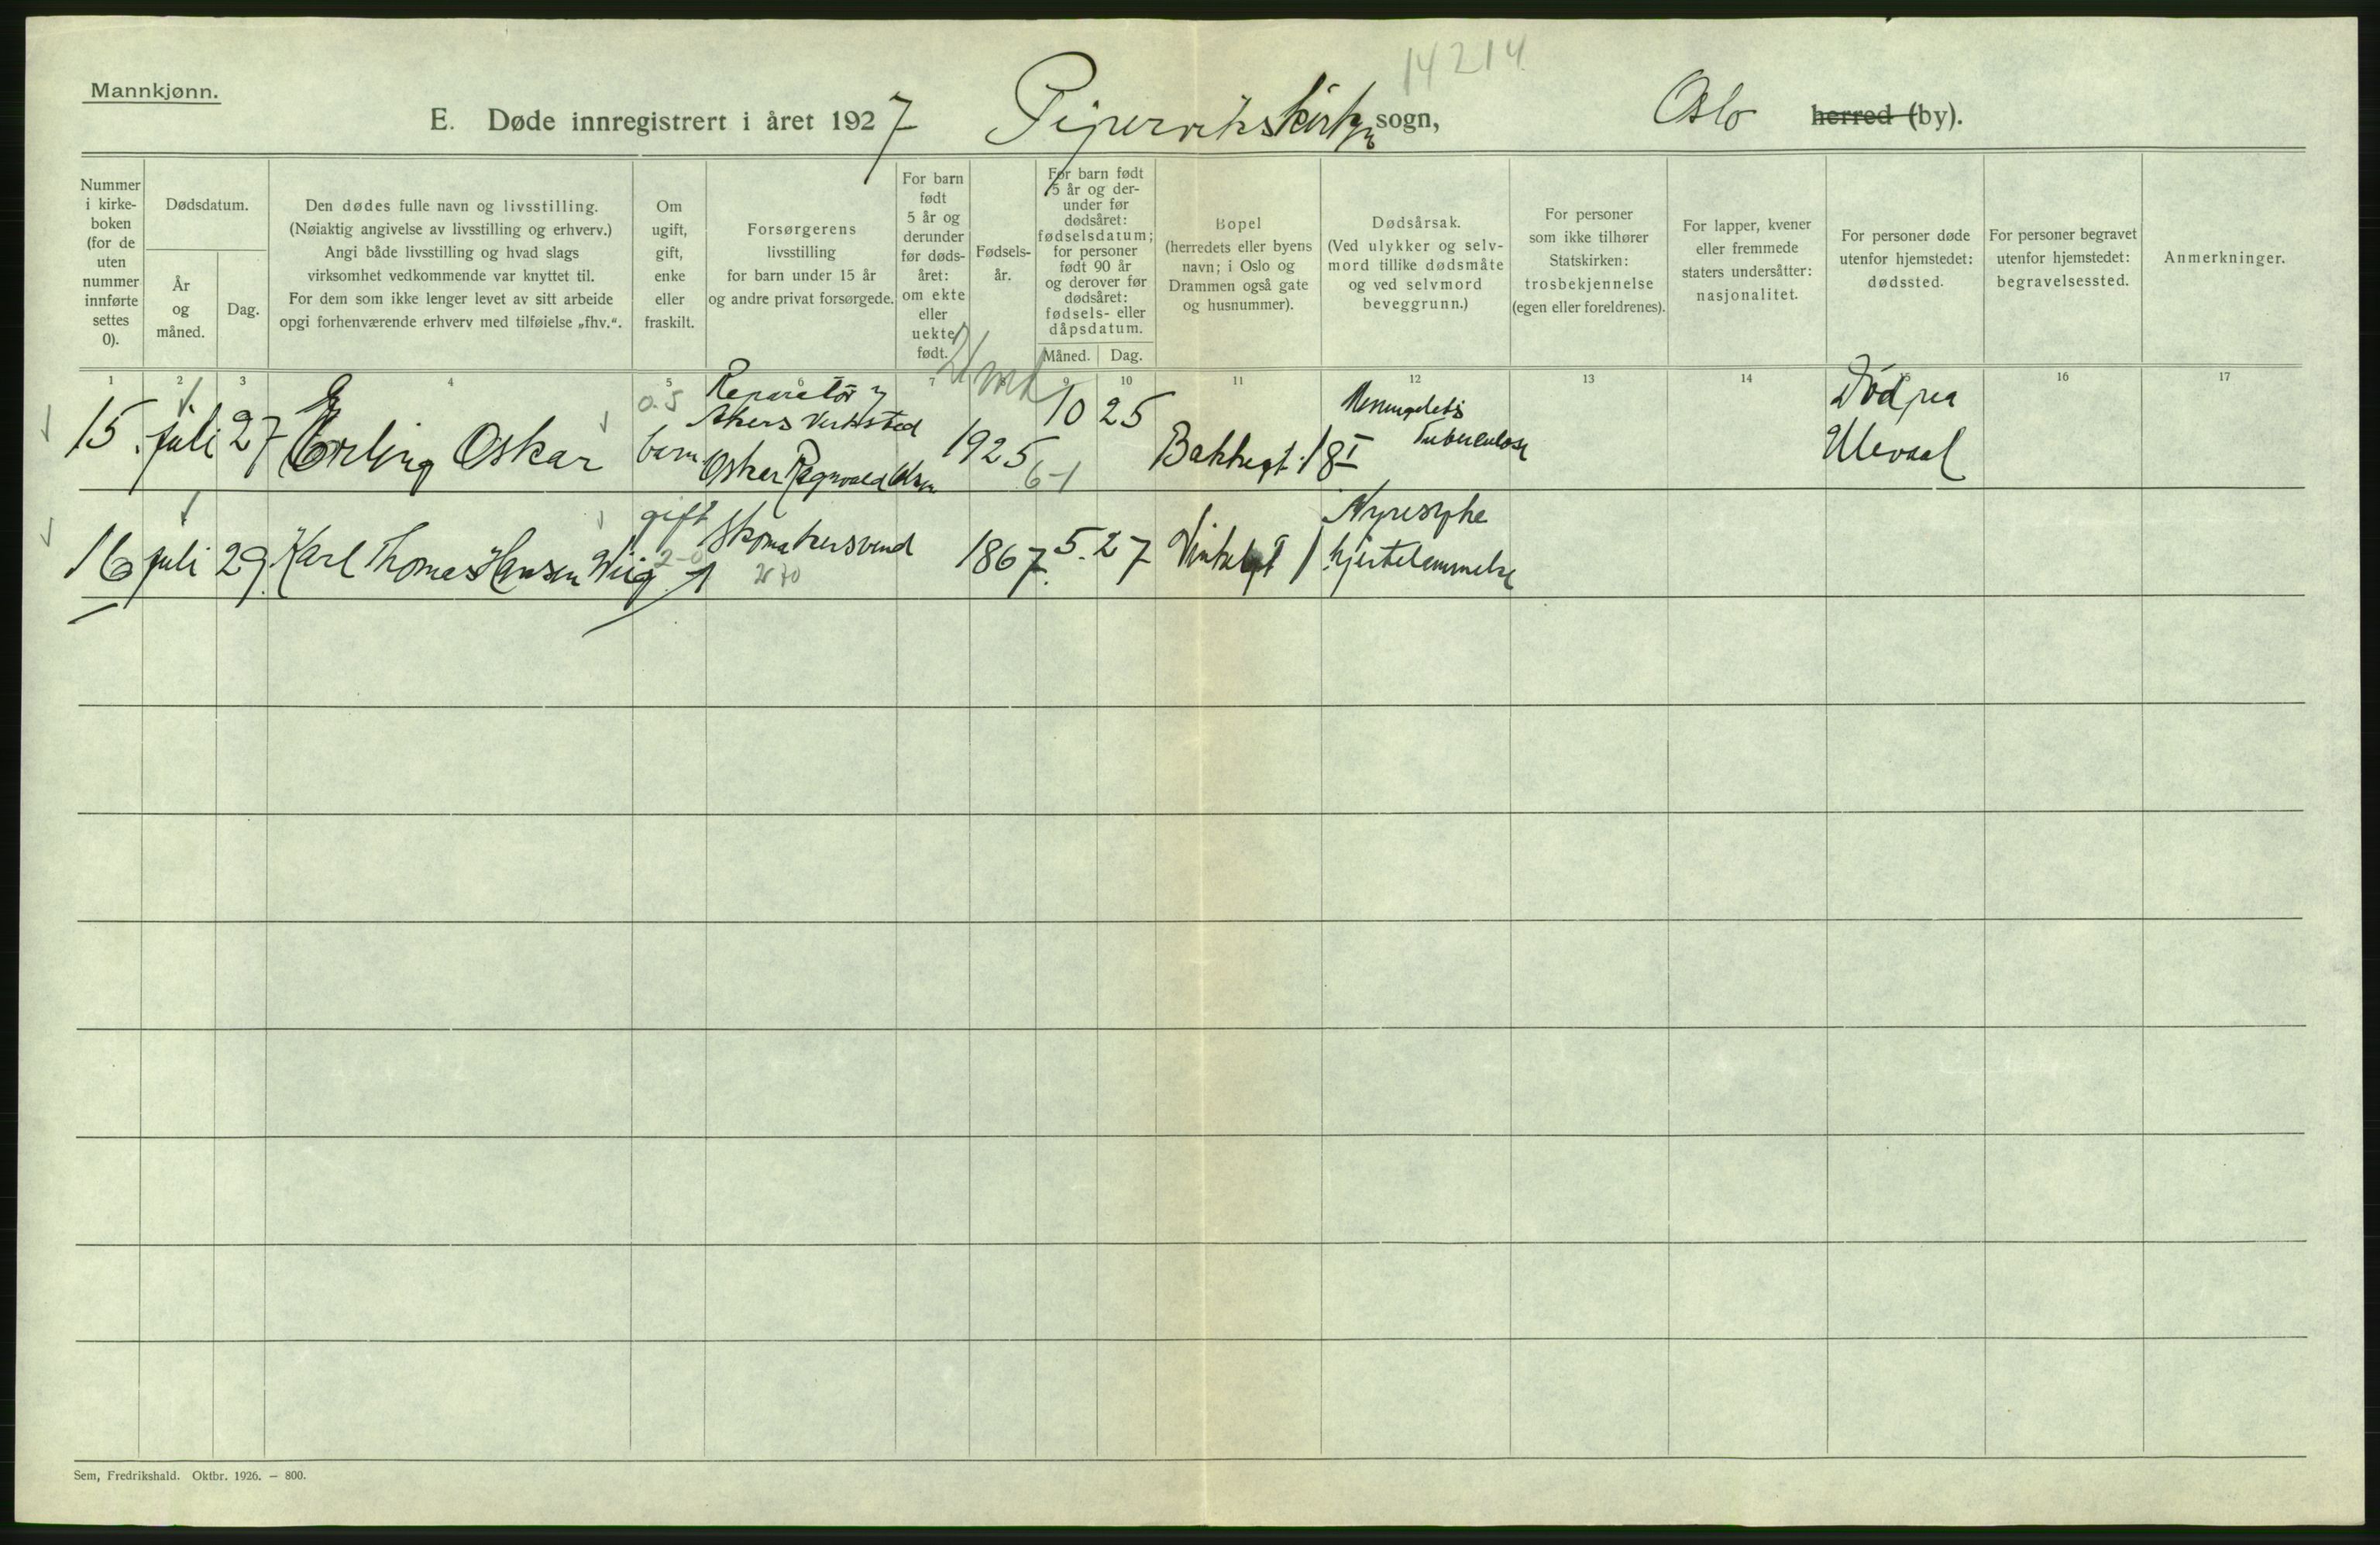 Mannkjønn.
14214
E. Døde innregistrert i året 1927 Pipervikskirken sogn, Oslo herred (by).
Nummer
i kirke-
boken
(for de
uten
nummer
innførte
settes
0).
Dødsdatum.
År
og
måned.
Dag.
Den dødes fulle navn og livsstilling.
(Nøiaktig angivelse av livsstilling og erhverv.)
Angi både livsstilling og hvad slags
virksomhet vedkommende var knyttet til.
For dem som ikke lenger levet av sitt arbeide
opgi forhenværende erhverv med tilføielse „fhv.“.
Om
ugift,
gift,
enke
eller
fraskilt.
Forsørgerens
livsstilling
for barn under 15 år
og andre privat forsørgede.
For barn
født
5 år og
derunder
før døds-
året:
om ekte
eller
uekte
født.
Fødsels-
år.
For barn født
5 år og der-
under før
dødsåret:
fødselsdatum;
for personer
født 90 år
og derover før
dødsåret:
fødsels- eller
dåpsdatum.
Måned. Dag.
Bopel
(herredets eller byens
navn; i Oslo og
Drammen også gate
og husnummer).
Dødsårsak.
(Ved ulykker og selv-
mord tillike dødsmåte
og ved selvmord
beveggrunn.)
For personer
som ikke tilhører
Statskirken:
trosbekjennelse
(egen eller foreldrenes).
For lapper, kvener
eller fremmede
staters undersåtter:
nasjonalitet.
For personer døde
utenfor hjemstedet:
dødssted.
For personer begravet
utenfor hjemstedet:
begravelsessted.
Anmerkninger.
1 2 3 4 5 6 7 8 9 10 11 12 13 14 15 16 17
15. juli 27 Erling Oskar
0.5
barn
Reparatör
Akers Verksted
Oskar Ragnvald Olsen
1925
6-1
10 25
Bakkegt. 18 I
Tuberculose
Död paa
Ulevaal
16 juli 29. Karl Thomas Hansen Wiig
gift
2-0
Skomakersvend
1867. 5. 27
Vinkelgt 1
Nyresyke
hjertelammelse
Sem, Fredrikshald. Oktbr. 1926. — 800.